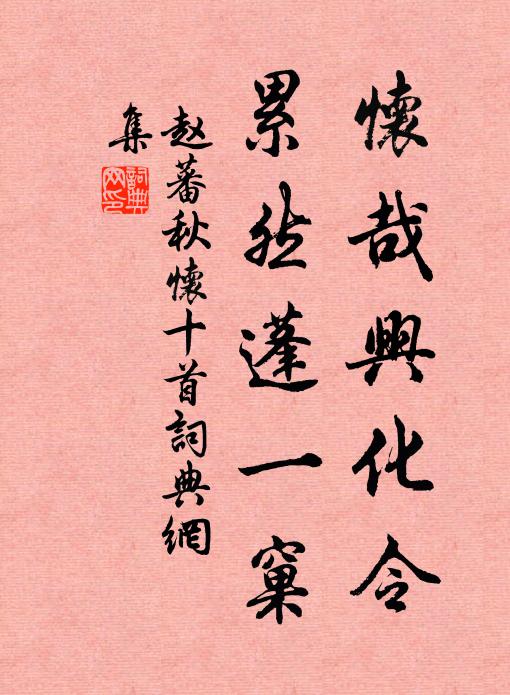 懷哉興化令
累然蓬一窠
赵蕃秋懷十首詞典網
集
詞典网印